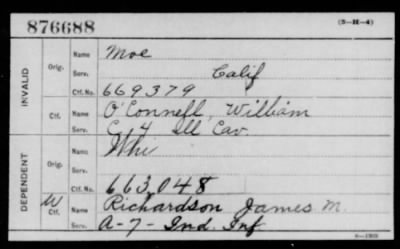 876688 (5-H-4)
INVALID
Orig. Name Moe
Serv. Calif
Ctf. No. 669379
Ctf. Name O'Connell, William
Serv. C, 4 Ill Cav.
DEPENDENT
Orig. Name Whi
Serv.
Ctf. No. 663,048
W Ctf. Name Richardson James M.
Serv. A-7-Ind. Inf